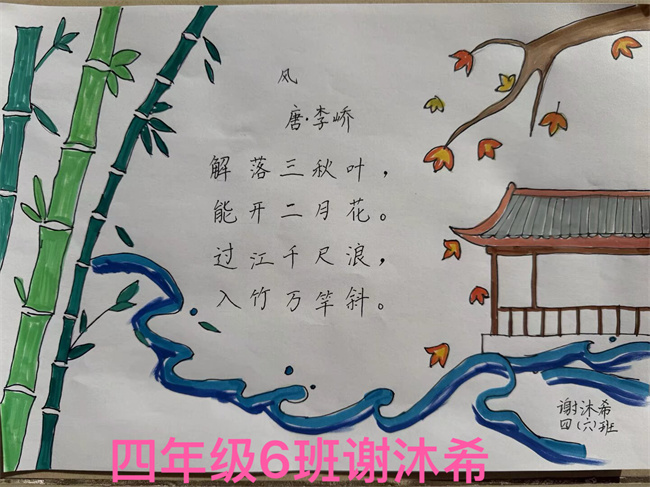 风
唐·李峤
解落三秋叶，
能开二月花。
过江千尺浪，
入竹万竿斜。
谢沐希
四(六)班
四年级6班谢沐希